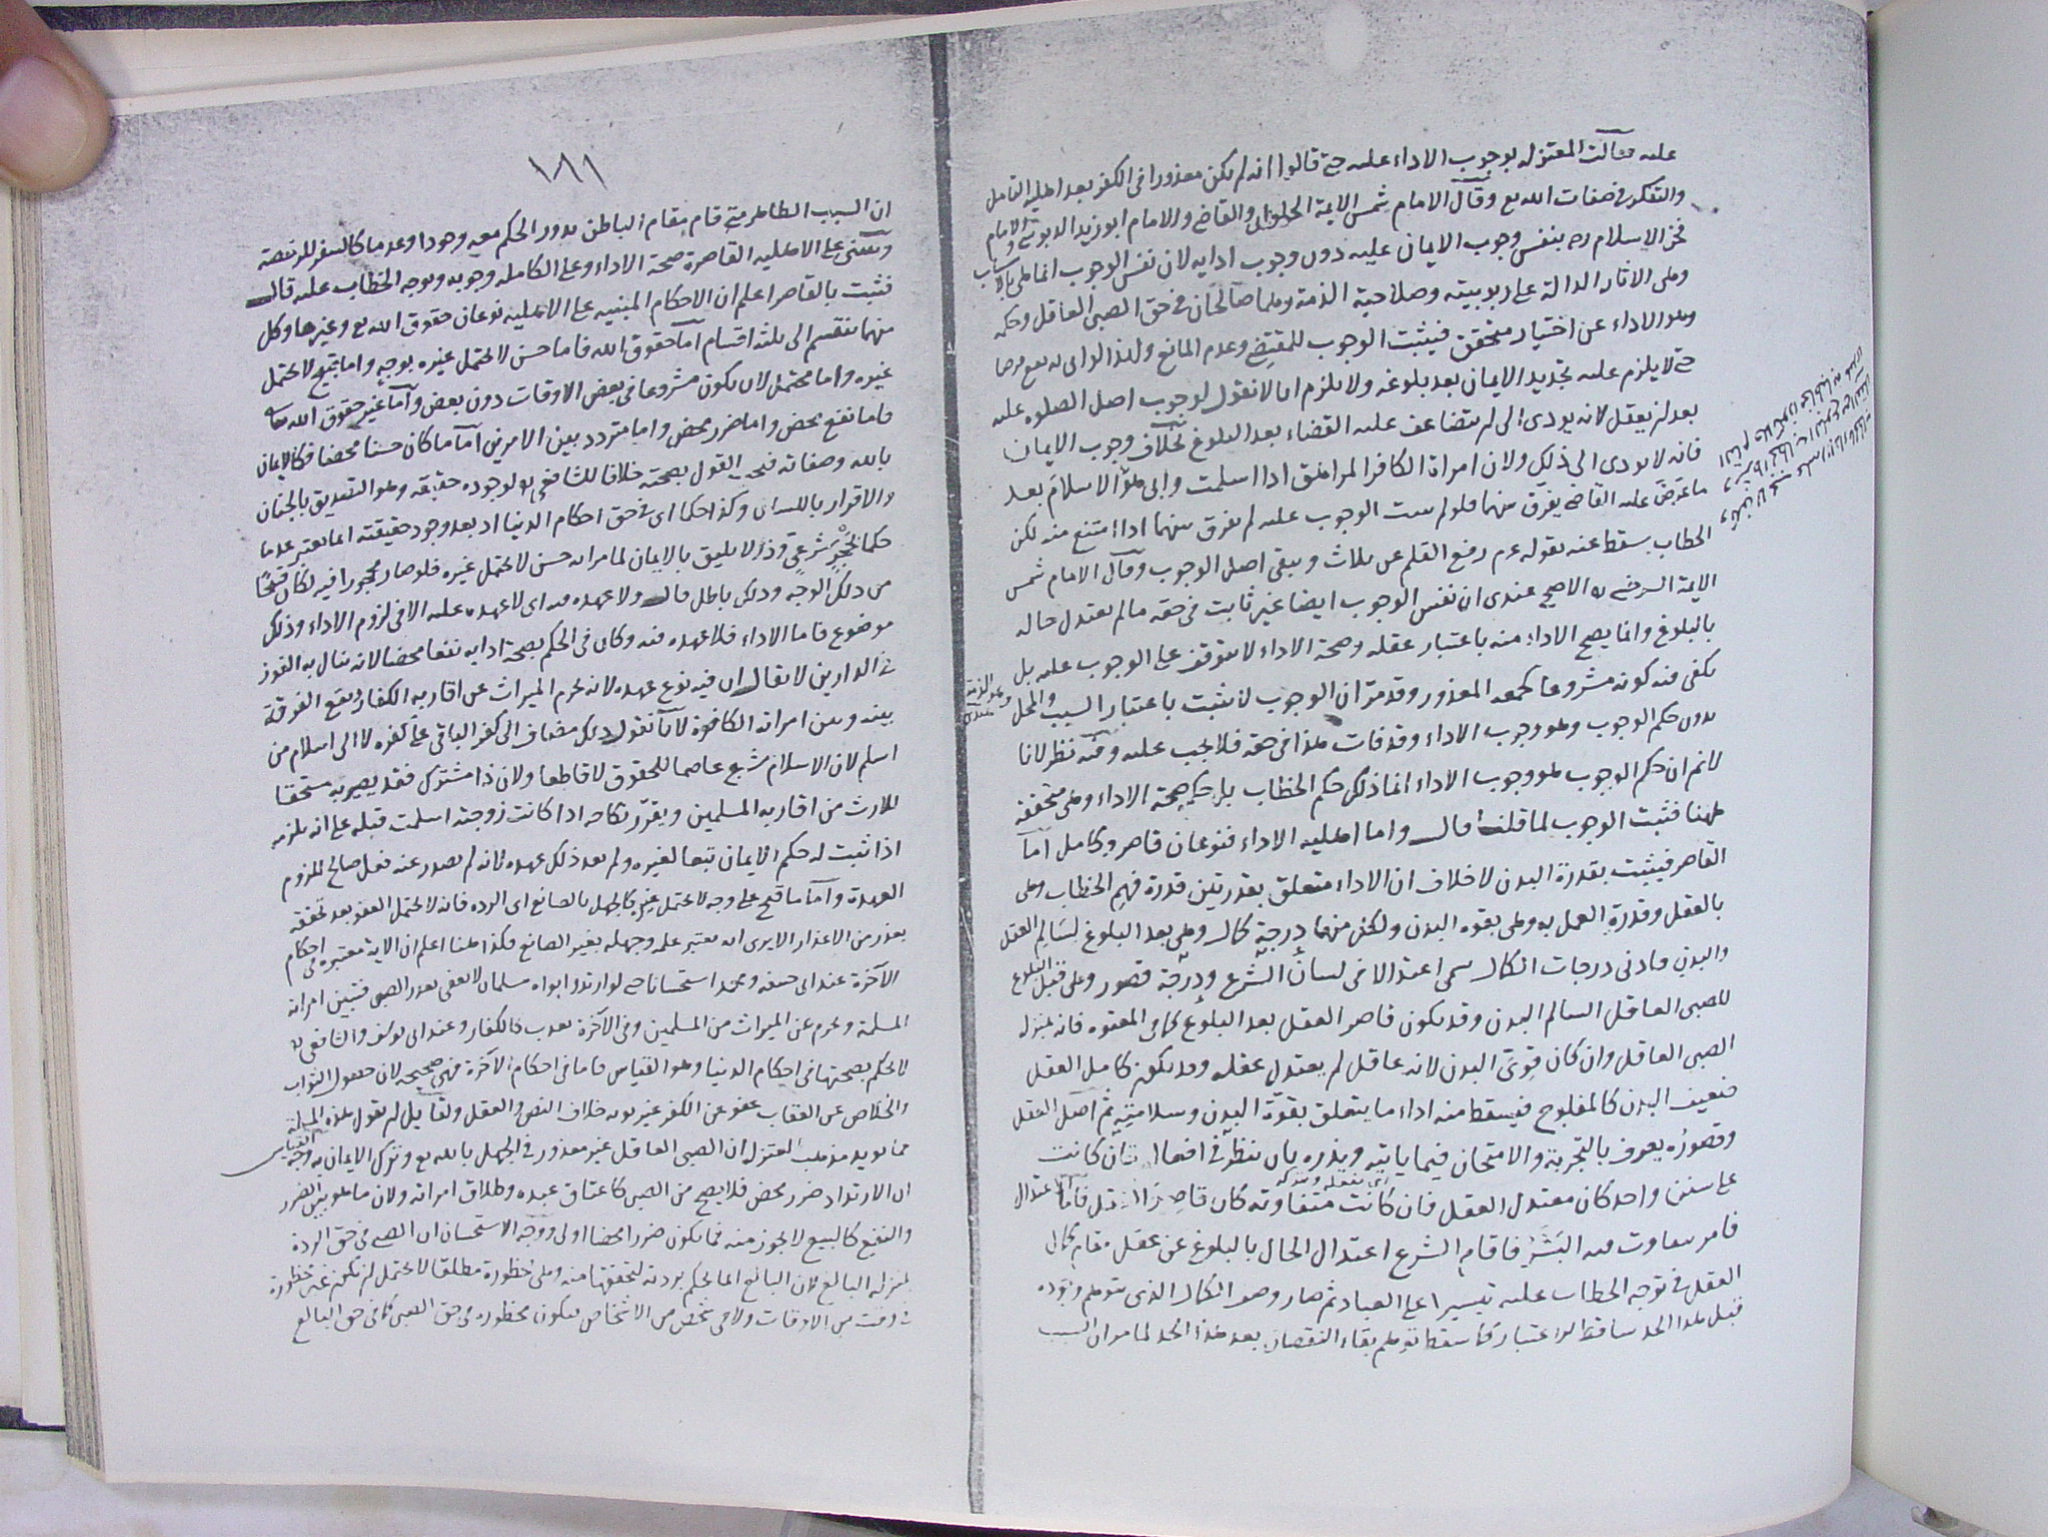 عليه فقالت المعتزله بوجوب الاداء عليه حتى قالوا انه لم يكن معذورا فى الكفر بعد اهليه التامل
والتفكر فى صفات الله تع وقال الامام شمس الايمة الحلوانى والقاضى والامام ابو زيد الدبوسى والامام
فخر الاسلام ره بنفس وجوب الايمان عليه دون وجوب ادايه لان نفس الوجوب انما هى بالاسباب
وهى الاثار الدالة على ربوبيته وصلاحية الذمة وهما صالحان فى حق الصبى العاقل وحكمه
وهو الاداء عن اختيار متحقق فيثبت الوجوب للمقتضى وعدم المانع ولهذا لو ادى به يقع فرضا
حتى لا يلزم عليه تجديد الايمان بعد بلوغه ولا يلزم انا لا نقول لوجوب اصل الصلوه عليه
بعد ان يعقل لانه يودى الى ان يتضاعف عليه القضاء بعد البلوغ بخلاف وجوب الايمان
فانه لا يودى الى ذلك ولان امراة الكافر المراهق اذا اسلمت وابى هو الاسلام بعد
ما عرض عليه القاضى يفرق بينهما فلو لم يثبت الوجوب عليه لم يفرق بينهما اذا امتنع منه لكن
الخطاب يسقط عنه بقوله عم رفع القلم عن ثلاث ويبقى اصل الوجوب وقال الامام شمس
الايمة السرخسى ره الاصح عندى ان نفس الوجوب ايضا غير ثابت فى حقه ما لم يعتدل حاله
بالبلوغ وانما يصح الاداء منه باعتبار عقله وصحة الاداء لا يتوقف على الوجوب عليه بل
يكفى فيه كونه مشروعا كجمعه المعذور وقد مر ان الوجوب لا يثبت باعتبار السبب والمحل
بدون حكم الوجوب وهو وجوب الاداء وقد فات هذا فى حقه فلا يجب عليه وفيه نظر لانا
لا نم ان حكم الوجوب هو وجوب الاداء انما ذلك حكم الخطاب بل حكمه صحة الاداء وهى متحققة
ههنا فثبت الوجوب لما قلنا قال واما اهليه الاداء فنوعان قاصر وكامل اما
القاصر فيثبت بقدرة البدن لا خلاف ان الاداء متعلق بقدرتين قدرة فهم الخطاب وهى
بالعقل وقدرة العمل به وهى بقوه البدن ولكل منهما درجة كمال وهى بعد البلوغ لسالم العقل
والبدن وادنى درجات الكمال سمى اعتدالا فى لسان الشرع ودرجة قصور وهى قبل البلوغ
للصبى العاقل السالم البدن وقد يكون قاصر العقل بعد البلوغ كما فى المعتوه فانه بمنزله
الصبى العاقل وان كان قوى البدن لانه عاقل لم يعتدل عقله وقد يكون كامل العقل
ضعيف البدن كالمفلوج فيسقط منه اداء ما يتعلق بقوة البدن وسلامته ثم اصل العقل
وقصوره يعرف بالتجربة والامتحان فيما ياتيه ويذره بان ينظر فى افعاله فان كانت
على سنن واحد كان معتدل العقل فان كانت متفاوته كان قاصر العقل فاما اعتدال
فامر يتفاوت فيه البشر فاقام الشرع اعتدال الحال بالبلوغ عن عقل مقام كمال
العقل فى توجه الخطاب عليه تيسيرا على العباد ثم صار وصف الكمال الذى يتوهم وجوده
قبل هذا الحد ساقط الاعتبار كما سقط توهم بقاء النقصان بعد هذا الحد لما مر ان السبب
١٨١
ان السبب الظاهر متى قام مقام الباطن يدور الحكم معه وجودا وعدما كالسفر للرخصة
ويبتنى على الاهليه القاصرة صحة الاداء وعلى الكامله وجوبه وتوجه الخطاب عليه قال
فثبت بالقاصر اعلم ان الاحكام المبنيه على الاهليه نوعان حقوق الله تع وغيرها وكل
منهما ينقسم الى ثلثه اقسام اما حقوق الله فاما حسن لا يحتمل غيره بوجه واما قبيح لا يحتمل
غيره واما محتمل لان يكون مشروعا فى بعض الاوقات دون بعض واما غير حقوق الله تعالى
فاما نفع محض واما ضرر محض واما متردد بين الامرين اما ما كان حسنا محضا فكالايمان
بالله وصفاته فيجب القول بصحته خلافا للشافعى ره لوجوده حقيقه وهو التصديق بالجنان
والاقرار باللسان وكذا حكما اى فى حق احكام الدنيا اذ بعد وجود حقيقته انما يعتبر عدما
حكما لحجر شرعى وذ لا يليق بالايمان لما مر انه حسن لا يحتمل غيره فلو صار محجورا فيه لكان قبيحا
من ذلك الوجه وذلك باطل قال ولا عهده فيه اى لا عهده عليه الا فى لزوم الاداء وذلك
موضوع فاما الاداء فلا عهده فيه وكان فى الحكم بصحة ادايه نفعا محضا لانه ينال به الفوز
فى الدارين لا يقال ان فيه نوع عهده لانه يحرم الميراث عن اقاربه الكفار ويقع الفرقة
بينه وبين امراته الكافرة لانا نقول ذلك مضاف الى كفر الباقى على كفره لا الى اسلام من
اسلم لان الاسلام شرع عاصما للحقوق لا قاطعا ولان ذا مشترك فقد يصير به مستحقا
للارث من اقاربه المسلمين ويقرر نكاحه اذا كانت زوجته اسلمت قبله على انه يلزمه
اذا ثبت له حكم الايمان تبعا لغيره ولم يعد ذلك عهده لانه لم يصدر عنه فعل صالح للزوم
العهدة واما ما قبح على وجه لا يحتمل غيره كالجهل بالصانع اى الرده فانه لا يحتمل العفو بعد تحققه
بعذر من الاعذار الا يرى انه يعتبر علمه وجهله بغير الصانع فكذا ههنا اعلم ان الردة معتبره فى احكام
الآخرة عند ابى حنيفه ومحمد استحسانا حتى لو ارتد وابواه مسلمان لا يعفى بعذر الصبى فتبين امراته
المسلمة ويحرم عن الميراث من المسلمين وفى الآخرة يعذب كالكفار وعند ابى يوسف والشافعى ره
لا يحكم بصحتها فى احكام الدنيا وهو القياس فاما فى احكام الآخرة فهى صحيحه لان حصول الثواب
والخلاص عن العقاب عفو عن الكفر غير توبه خلاف النص والعقل ولقايل ان يقول هذه المسئلة
مما يويد مذهب المعتزله ان الصبى العاقل غير معذور فى الجهل بالله تع وترك الايمان به وجه القياس
ان الارتداد ضرر محض فلا يصح من الصبى كاعتاق عبده وطلاق امراته ولان ما هو بين الضرر
والنفع كالبيع لا يجوز منه فما يكون ضررا محضا اولى ووجه الاستحسان ان الصبى فى حق الردة
بمنزلة البالغ لان البالغ انما يحكم بردته لتحققها منه وهى محظورة مطلقا لا يحتمل ان يكون غير محظورة
فى وقت من الاوقات ولا فى شخص من الاشخاص فيكون محظوره فى حق الصبى كما فى حق البالغ